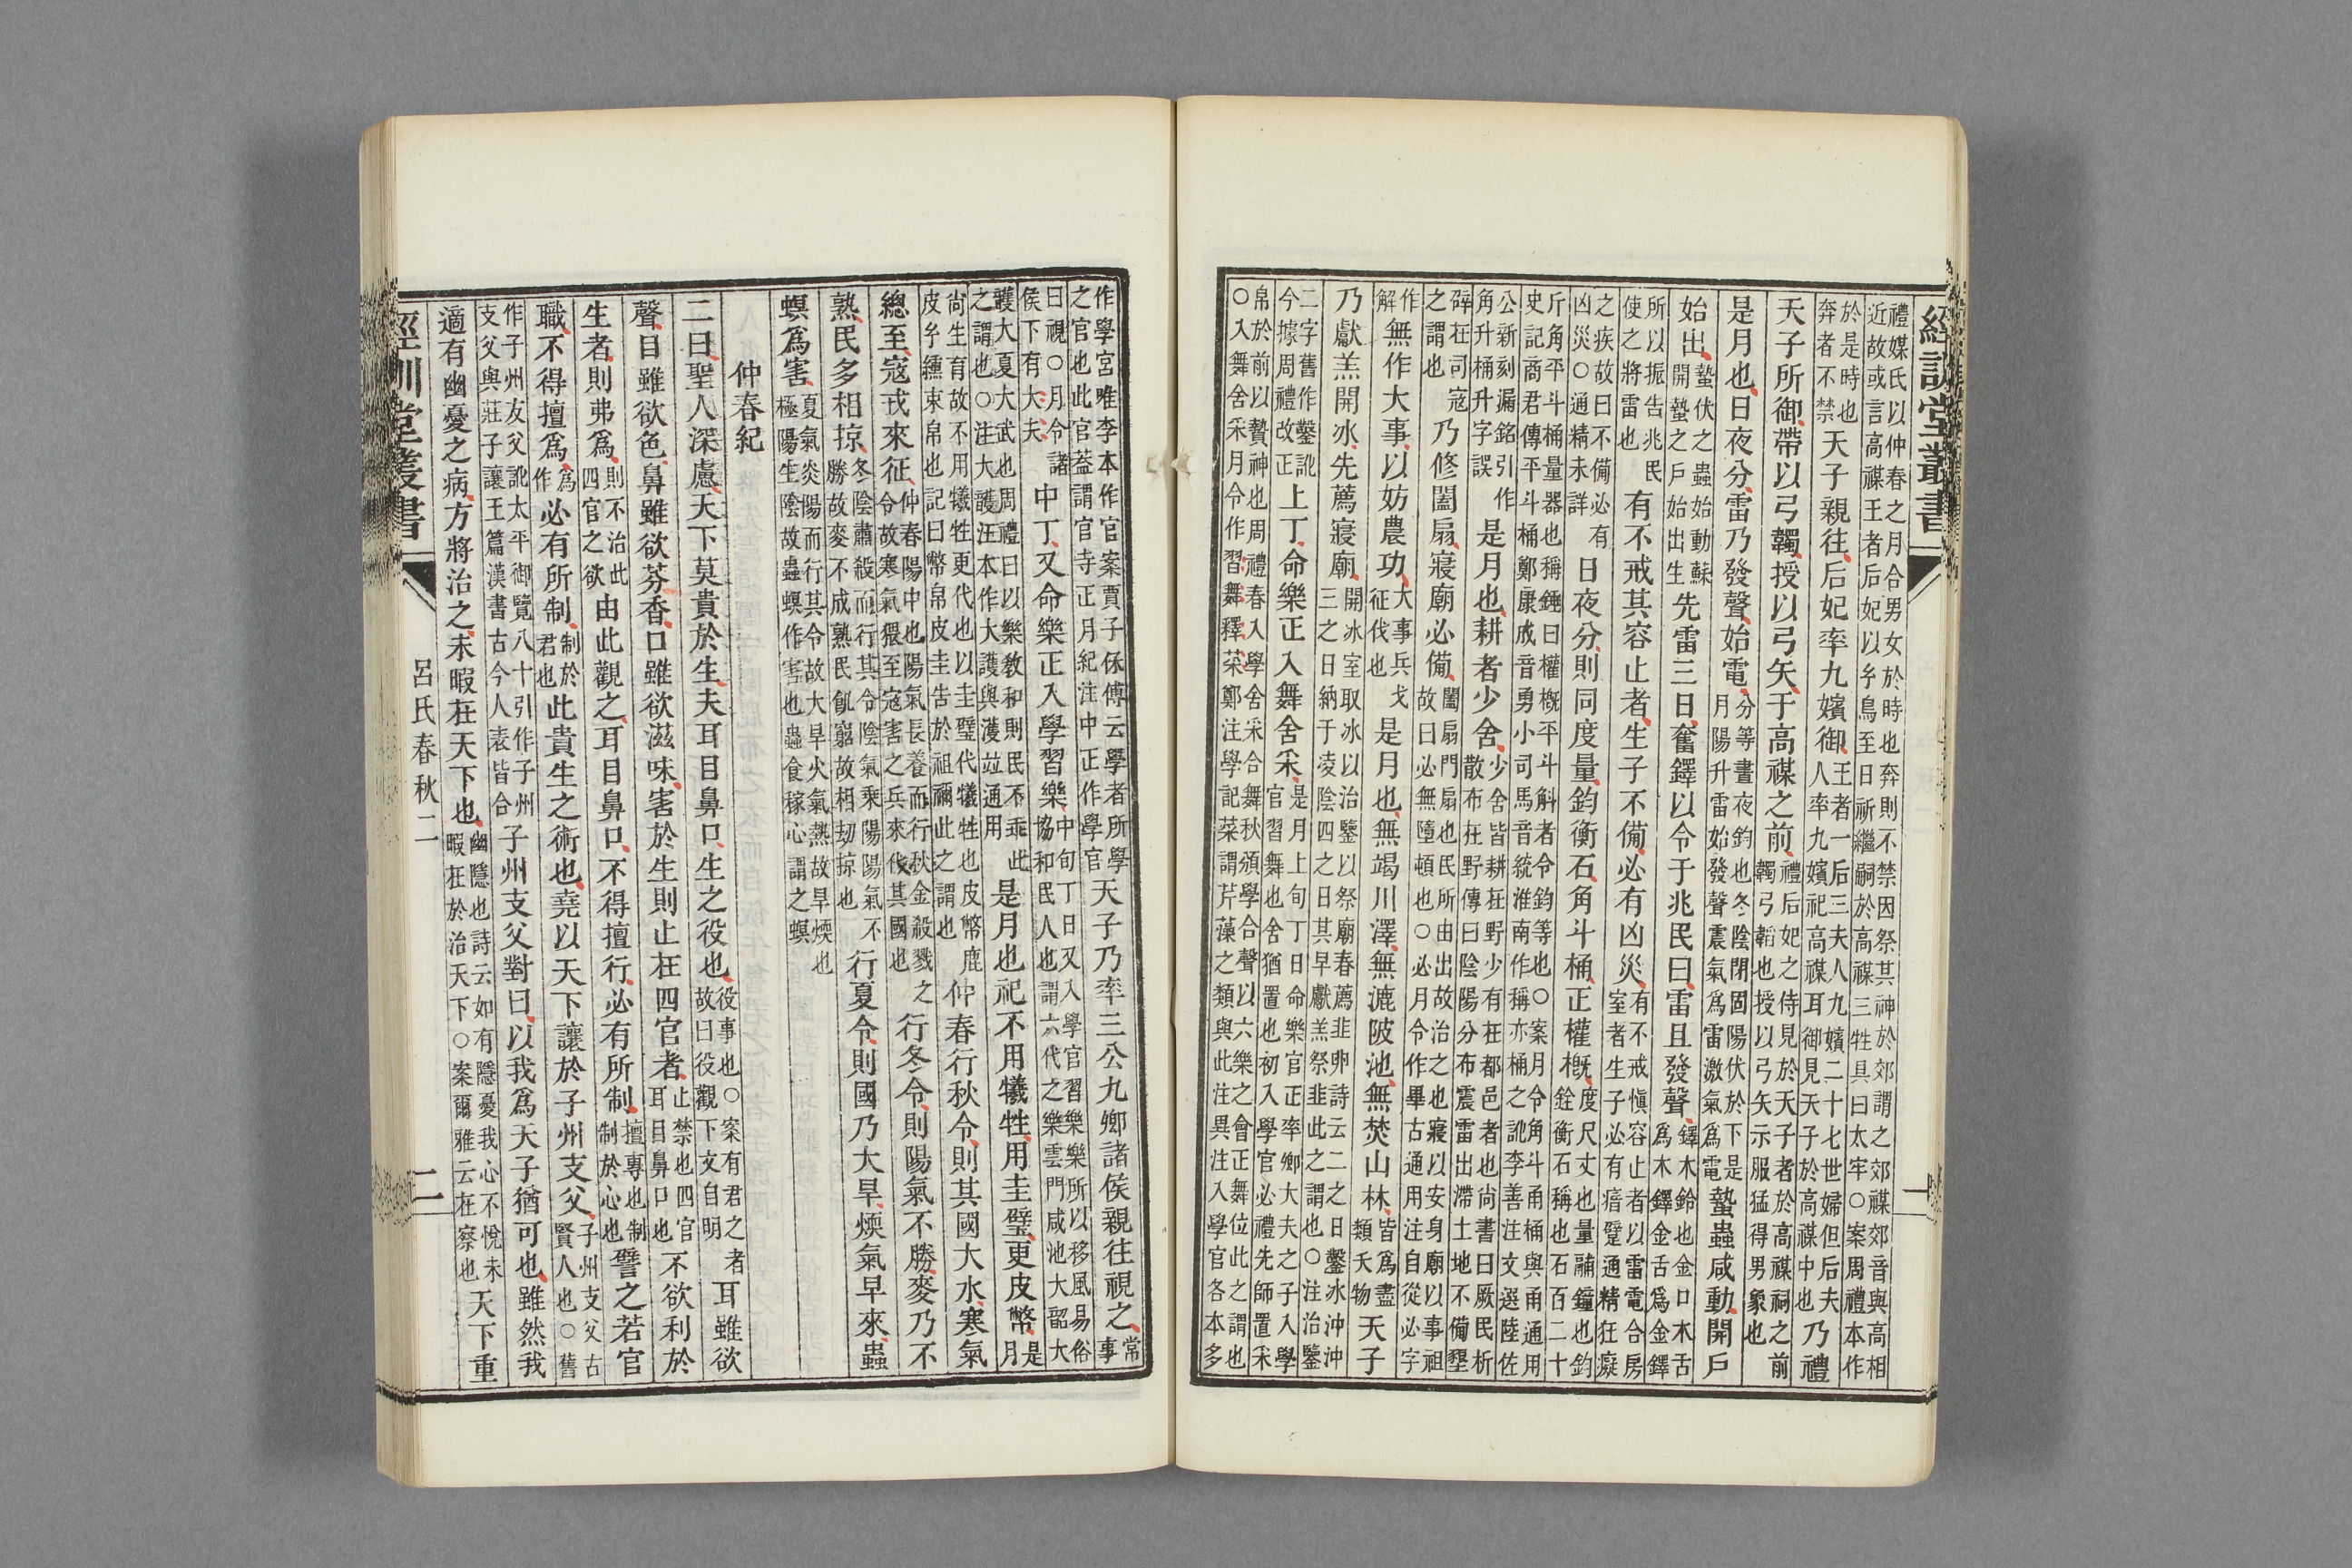 經訓堂叢書
二
禮媒氏以仲春之月合男女於時也奔則不禁因祭其神於郊謂之郊禖郊音與高相
近故或言高禖王者后妃以玄鳥至日祈繼嗣於高禖三牲具曰太牢○案周禮本作
於是時也奔者不禁天子親往后妃率九嬪御王者一后三夫人九嬪二十七世婦但后夫人率九嬪祀高禖耳御見天子於高禖中也乃禮
天子所御帶以弓韣授以弓矢于高禖之前禮后妃之侍見於天子者於高禖祠之前韣弓韜也授以弓矢示服猛得男象也
是月也日夜分雷乃發聲始電分等晝夜鈞也冬陰閉固陽伏於下是月陽升雷始發聲震氣爲雷激氣爲電蟄蟲咸動開戸
始出蟄伏之蟲始動蘇開蟄之戸始出生先雷三日奮鐸以令于兆民曰雷且發聲鐸木鈴也金口木舌爲木鐸金舌爲金鐸
所以振告兆民使之將雷也有不戒其容止者生子不備必有凶災有不戒愼容止者以雷電合房室者生子必有瘖躄通精狂癡
之疾故曰不備必有凶災○通精未詳日夜分則同度量鈞衡石角斗桶正權槪度尺丈也量鬴鐘也鈞銓衡石稱也石百二十
斤角平斗桶量器也稱錘曰權槪平斗斛者令鈞等也○案月令角斗甬桶與甬通用
史記商君傳平斗桶鄭康成音勇小司馬音統淮南作稱亦桶之訛李善注文選陸佐
公新刻漏銘引作角升桶升字誤是月也耕者少舍少舍皆耕在野少有在都邑者也尚書曰厥民析散布在野傳曰陰陽分布震雷出滯土地不備墾
辟在司寇之謂也乃修闔扇寢廟必備闔扇門扇也民所由出故治之也寢以安身廟以事祖故曰必無墮頓也○必月令作畢古通用注自從必字
作解無作大事以妨農功大事兵戈征伐也是月也無竭川澤無漉陂池無焚山林皆爲盡類夭物天子
乃獻羔開冰先薦寢廟開冰室取冰以治鑒以祭廟春薦韭卵詩云二之日鑿冰沖沖三之日納于凌陰四之日其早獻羔祭韭此之謂也○注治鑒
二字舊作鑿訛今據周禮改正上丁命樂正入舞舍采是月上旬丁日命樂官正率卿大夫之子入學官習舞也舍猶置也初入學官必禮先師置采
帛於前以贄神也周禮春入學舍采合舞秋頒學合聲以六樂之會正舞位此之謂也
○入舞舍采月令作習舞釋菜鄭注學記菜謂芹藻之類與此注異注入學官各本多
作學宮唯李本作官案賈子保傅云學者所學之官也此官葢謂官寺正月紀注中正作學官天子乃率三公九卿諸侯親往視之常事
曰視○月令諸侯下有大夫中丁又命樂正入學習樂中旬丁日又入學官習樂樂所以移風易俗協和民人也謂六代之樂雲門咸池大韶大
護大夏大武也周禮曰以樂敎和則民不乖此之謂也○注大護汪本作大濩與濩竝通用是月也祀不用犧牲用圭璧更皮幣是月
尚生育故不用犧牲更代也以圭璧代犧牲也皮幣鹿皮玄纁束帛也記曰幣帛皮圭告於祖禰此之謂也仲春行秋令則其國大水寒氣
總至寇戎來征仲春陽中也陽氣長養而行秋金殺戮之令故寒氣猥至寇害之兵來伐其國也行冬令則陽氣不勝麥乃不
熟民多相掠冬陰肅殺而行其令陰氣乘陽陽氣不勝故麥不成熟民飢窮故相劫掠也行夏令則國乃大旱煗氣早來蟲
螟爲害夏氣炎陽而行其令故大旱火氣熱故旱煗也極陽生陰故蟲螟作害也蟲食稼心謂之螟
仲春紀
二曰聖人深慮天下莫貴於生夫耳目鼻口生之役也役事也○案有君之者故曰役觀下文自明耳雖欲
聲目雖欲色鼻雖欲芬香口雖欲滋味害於生則止在四官者止禁也四官耳目鼻口也不欲利於
生者則弗爲則不治此四官之欲由此觀之耳目鼻口不得擅行必有所制擅專也制制於心也譬之若官
職不得擅爲爲作必有所制制於君也此貴生之術也堯以天下讓於子州支父子州支父古賢人也○舊
作子州友父訛太平御覽八十引作子州支父與莊子讓王篇漢書古今人表皆合子州支父對曰以我爲天子猶可也雖然我
適有幽憂之病方將治之未暇在天下也幽隱也詩云如有隱憂我心不悅未暇在於治天下○案爾雅云在察也天下重
經訓堂叢書
呂氏春秋二
二